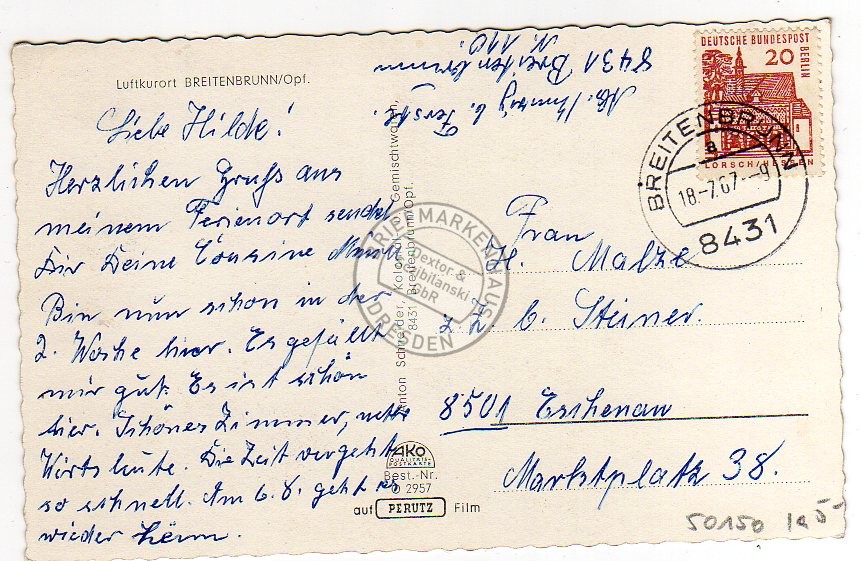 Luftkurort BREITENBRUNN/Opf.
Liebe Hilde!
Herzlichen Gruß aus
meinem Ferienort sendet
Dir Deine Cousine
Bin nun schon in der
2. Woche hier. Es gefällt
mir gut. Es ist schön
hier. Schönes Zimmer, nette
Wirtsleute. Die Zeit vergeht
so schnell. Am 6.8. geht es
wieder heim.
8431 Breitenbrunn
N. 110
Anton Schneider, Kolonial- Gemischtwaren,
8431 Breitenbrunn/Opf.
AKO
QUALITÄTS-
POSTKARTE
Best.-Nr.
2957
auf PERUTZ Film
DEUTSCHE BUNDESPOST
BERLIN
20
LORSCH/HESSEN
BREITENBRUNN
a
18.-7.67.-9
8431
Frau
H. Matze
z. Z. b. Steiner.
8501 Eschenau
Marktplatz 38.
BRIEFMARKENHAUS
Dextor &
GbR
DRESDEN
50150